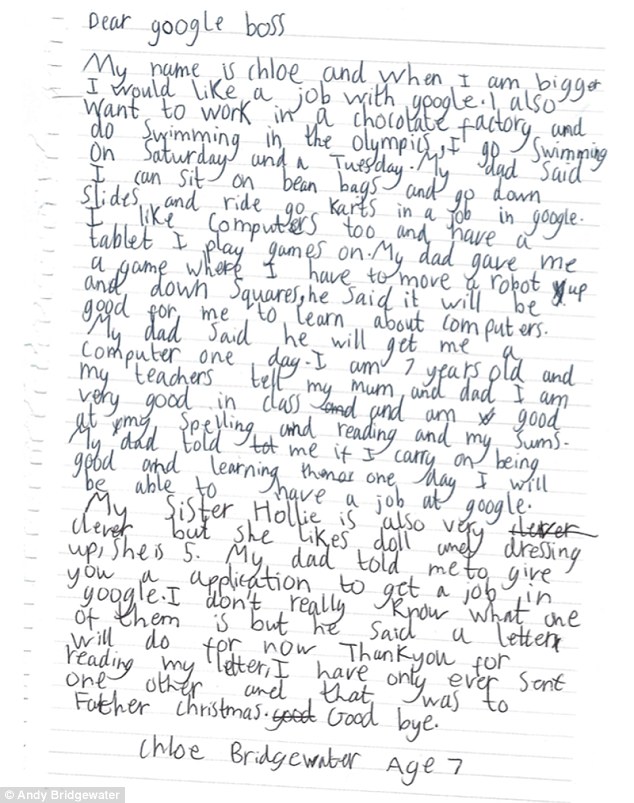 Dear google boss
My name is chloe and when I am bigger
I would like a job with google. I also
want to work in a chocolate factory and
do swimming in the olympics, I go swimming
On Saturday and a Tuesday. My dad said
I can sit on bean bags and go down
slides and ride go karts in a job in google.
I like computers too and have a
tablet I play games on. My dad gave me
a game where I have to move a robot up
and down squares, he said it will be
good for me to learn about computers.
My dad said he will get me a
computer one day. I am 7 years old and
my teachers tell my mum and dad I am
very good in class and and am good
at my spelling and reading and my sums.
My dad told tot me if I carry on being
good and learning one day I will
be able to have a job at google.
My sister Hollie is also very clever
clever but she likes doll and dressing
up, she is 5. My dad told me to give
you a application to get a job in
google. I don't really know what one
of them is but he said a letter
will do for now Thankyou for
reading my letter, I have only ever sent
one other and that was to
Father christmas. good Good bye.
Chloe Bridgewater Age 7
© Andy Bridgewater